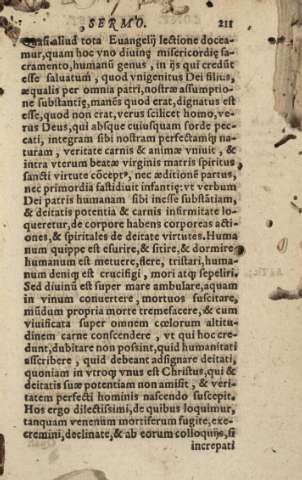 SERMO. 211
Quasi aliud tota Euangelij lectione docea-
mur, quam hoc vno diuinę misericordię sa-
cramento, humanũ genus, in ijs qui credũt
esse saluatum, quod vnigenitus Dei filius,
æqualis per omnia patri, nostræ assumptio-
ne substantię, manẽs quod erat, dignatus est
esse, quod non erat, verus scilicet homo, ve-
rus Deus, qui absque cuiusquam sorde pec-
cati, integram sibi nostram perfectamq; na-
turam, veritate carnis & animæ vniuit, &
intra vterum beatæ virginis marris spiritus
sancti virtute cõcept⁹, nec æditionẽ partus,
nec primordia fastidiuit infantię: vt verbum
Dei patris humanam sibi inesse substãtiam,
& deitatis potentia & carnis infirmitate lo-
queretur, de corpore habens corporeas acti-
ones, & spiritales de deitate virtutes. Huma
num quippe est esurire, & sitire, & dormire
humanum est metuere, flere, tristari, huma-
num deniq; est crucifigi, mori atq; sepeliri.
Sed diuinũ est super mare ambulare, aquam
in vinum conuertere, mortuos suscitare,
mũdum propria morte tremefacere, & cum
viuificata super omnem cœlorum altitu
dinem carne conscendere, vt qui hoc cre-
dunt, dubitare non possint, quid humanitati
asscribere, quid debeant adsignare deitati,
quoniam in vtroq; vnus est Christus, qui &
deitatis suæ potentiam non amisit, & veri-
tatem perfecti hominis nascendo suscepit.
Hos ergo dilectissimi, de quibus loquimur,
tanquam venenum mortiferum fugite, exe-
cremini, declinate, & ab eorum colloquijs, si
increpati